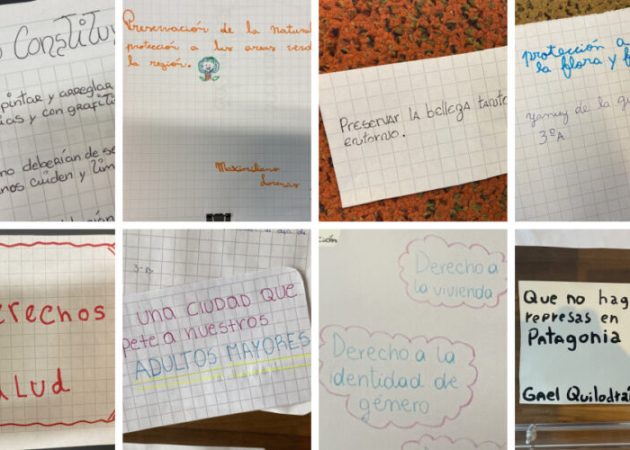 Constitu
pintar y arreglar
ias y con grafitis
no deberían de se
nos cuiden y lim
Preservación de la natural
protección a las areas verd
la región.
Maximiliano
Preservar la belleza tanto
entorno.
protección a
la flora y f
Yanny de la
3ºA
erechos
alud
3-B
una ciudad que
pete a nuestros
ADULTOS MAYORES
Derecho a
la vivienda
Derecho a la
identidad de
género
Derecho a la
Que no hag
represas en
Patagonia
Gael Quilodrá